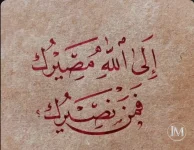 إِلَى اللهِ مَصِيرُكَ
فَمَنْ نَصِيرُكَ
JM